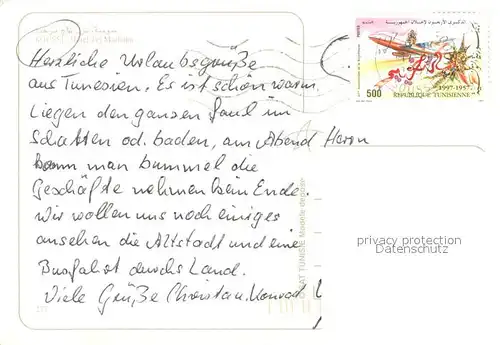 Herzliche Urlaubsgrüße
aus Tunesien. Es ist schön warm
Liegen den ganzen faul im
Schatten od. baden, am Abend Herrn
kann man bummel die
Geschäfte nehmen kein Ende.
Wir wollen uns noch einiges
ansehen die Altstadt und eine
Busfahrt durchs Land.
Viele Grüße Christa u. Konrad
500
1997-1957
REPUBLIQUE TUNISIENNE
privacy protection
Datenschutz
TUNISIE Modèle déposé